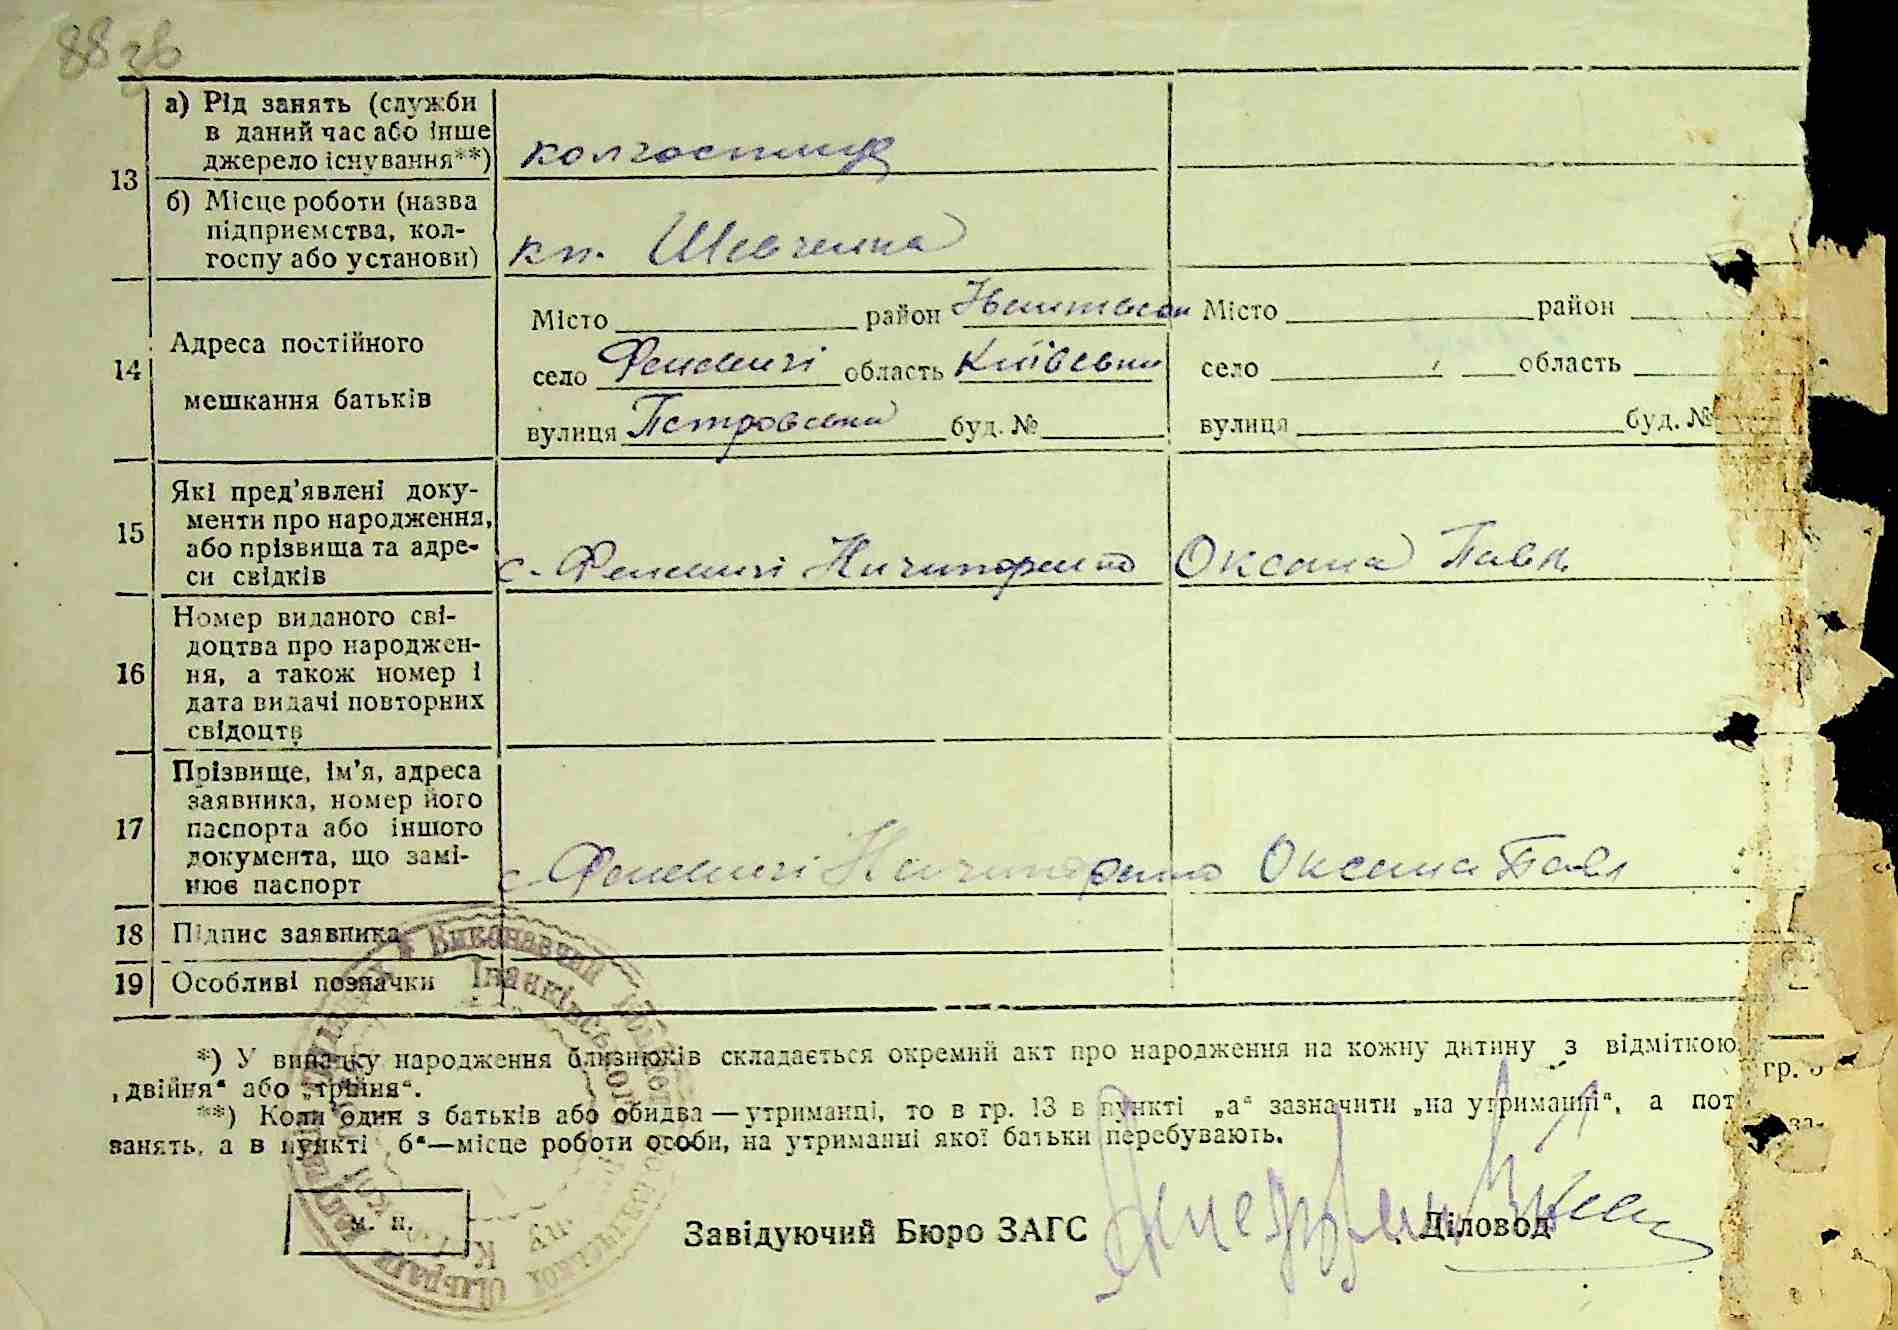 88 зв
13 а) Рід занять (служби
в даний час або інше
джерело існування**) колгоспниця
б) Місце роботи (назва
підприємства, кол-
госпу або установи) кп. Шевченка
14 Адреса постійного
мешкання батьків
Місто район Місто район
село Феневичі область Київська село область
вулиця Петровська буд. № вулиця буд. №
15 Які пред'явлені доку-
менти про народження,
або прізвища та адре-
си свідків с. Феневичі Ничипоренко Оксана Павл.
16 Номер виданого сві-
доцтва про народжен-
ня, а також номер і
дата видачі повторних
свідоцтв
17 Прізвище, ім'я, адреса
заявника, номер його
паспорта або іншого
документа, що замі-
нює паспорт с. Феневичі Ничипоренко Оксана Павл
18 Підпис заявника
19 Особливі позначки
*) У випадку народження близнюків складається окремий акт про народження на кожну дитину з відміткою
„двійня“ або „трійня“.
**) Коли один з батьків або обидва — утриманці, то в гр. 13 в пункті „а“ зазначити „на утриманні“, а пот
занять, а в пункті б“—місце роботи особи, на утриманні якої батьки перебувають.
м. п.
Завідуючий Бюро ЗАГС Діловод
Виконавчий Іванківської
гр.
за-